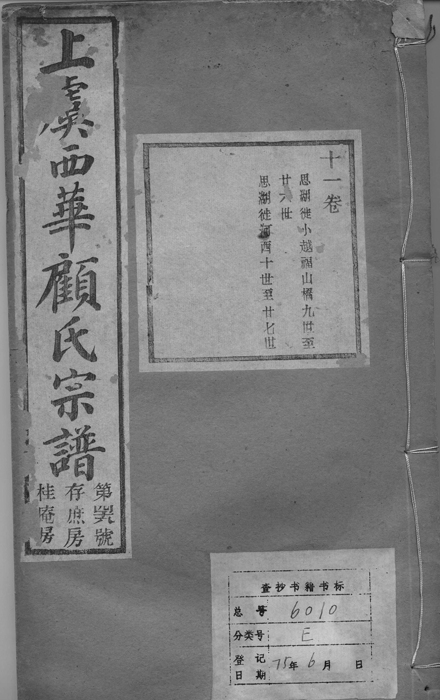 上虞西華顧氏宗譜
第 號
存庶房
桂庵房
十一卷
思湖徙小越福山橋九世至
廿六世
思湖徙河西十世至廿七世
查抄书籍书标
总号 6010
分类号 E
登记日期 75年6月 日